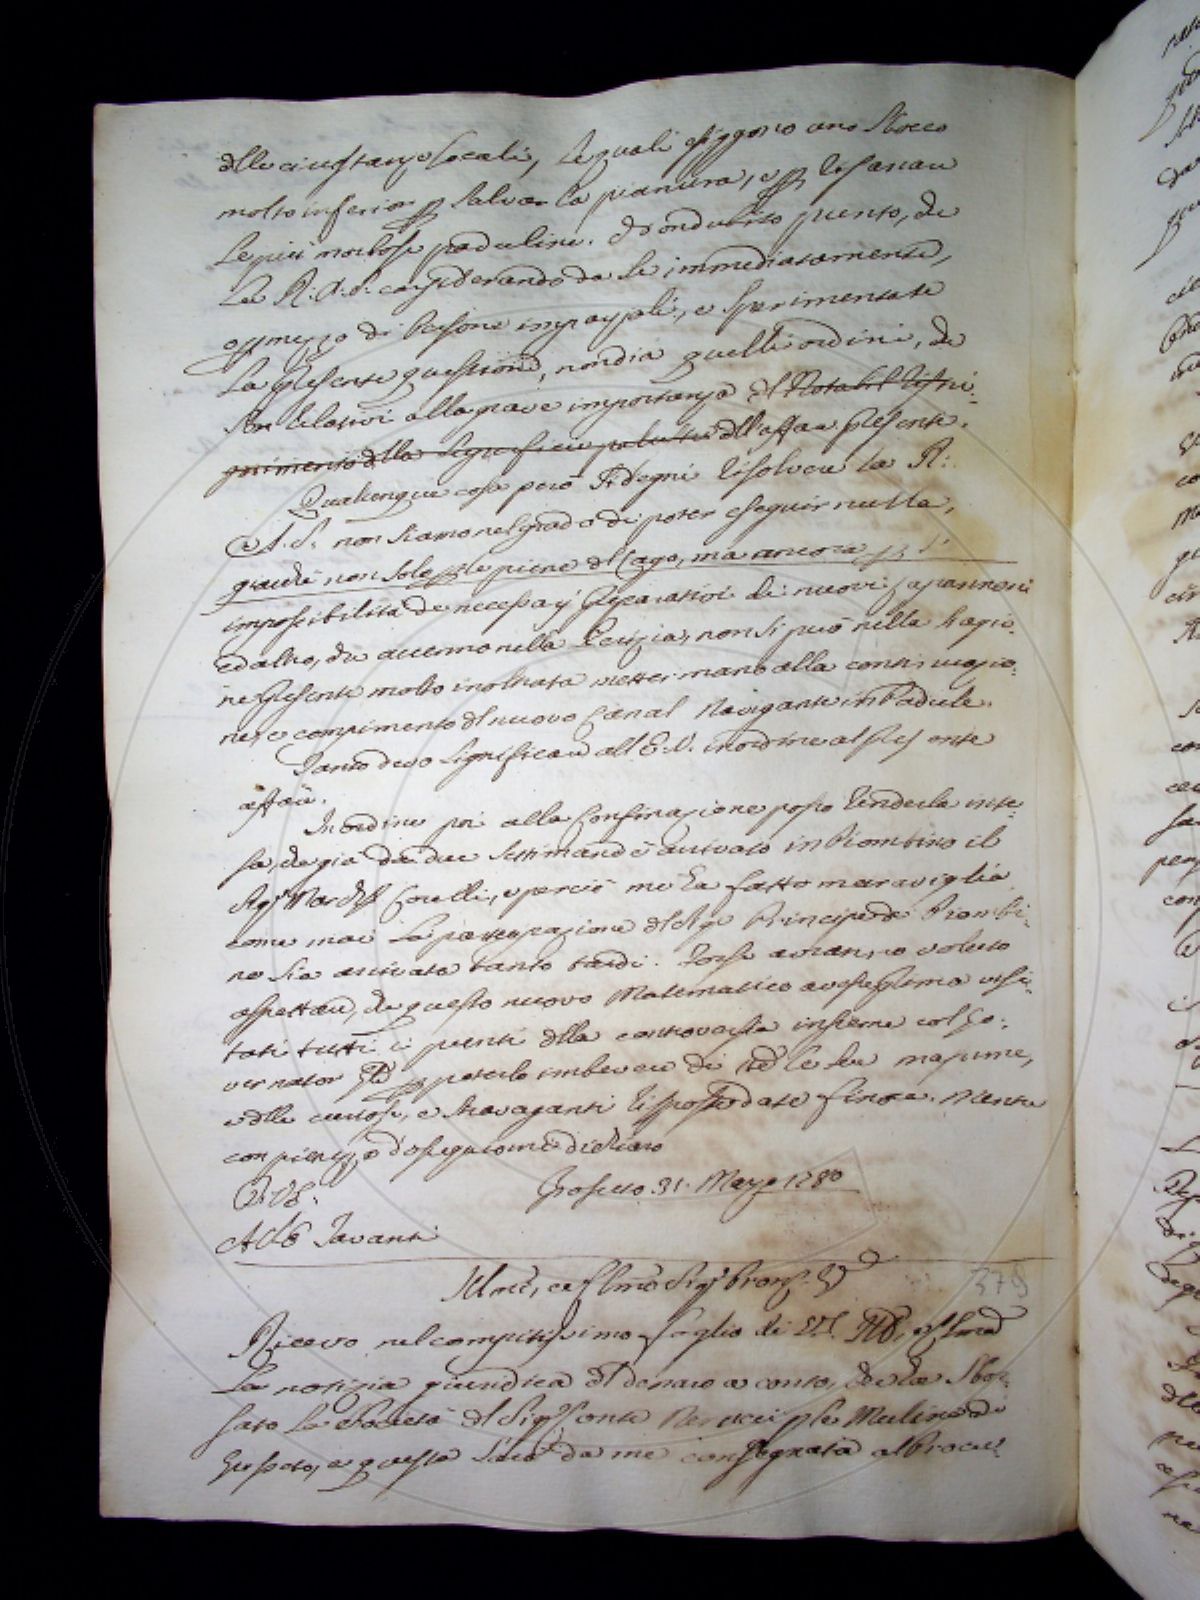 delle circostanze locali, le quali esiggono uno sbocco
molto inferior per salvar la pianura, e per risanare
le più morbose paduline. Ho ondubito punto, che
la R. A. S. considerando da se immediatamente,
o per mezzo di Persone imparziali, e sperimentate
la presente questione, non dia quelli ordini, che
son relativi alla grave importanza del Notabil ristri-
gnimento della superficie palustre dell'affare presente.
Qualunque cosa però si degni risolvere la R:
A. S. non siamo nel grado di poter eseguir nulla,
giacchè non solo per le piene del Lago, ma ancora per l'
impossibilità de necessarj preparativi di nuovi capannoni
ed altro, che accenno nella Perizia, non si può nella stagio-
ne presente molto inoltrata metter mano alla continuazio-
ne, e compimento del nuovo Canal Navigante in Padule.
Tanto devo significare all' E. V. in ordine al presente
affare.
In ordine poi alla Confinazione posso renderla inte-
sa, che già da due settimane è arrivato in Piombino il
Sig. Corelli, e perciò mi ha fatto maraviglia
come mai la partecipazione del Sig. Principe di Piombi-
no sia arrivata tanto tardi. Forse avranno voluto
aspettare, che questo nuovo Matematico avesse prima visi-
tati tutti i punti della controversia insieme col Go-
vernator per poterlo imbevere di tutte le sue massime,
e delle curiose, e stravaganti risposte date finora. Mentre
con pienezza d'ossequio mi dichiaro
D. V. E.
Grosseto 31. Marzo 1780
A S. E. Tavanti
Illmo, e Clmo Sig. Pron. Col.
379
Ricevo nel compitissimo foglio di VS. Illma, e Clma
la notizia giuridica del denaro a conto, che ha sbor-
sato la Società del Sig. Conte per le Mulina di
Grosseto, e questa sarà da me consegnata al Procur